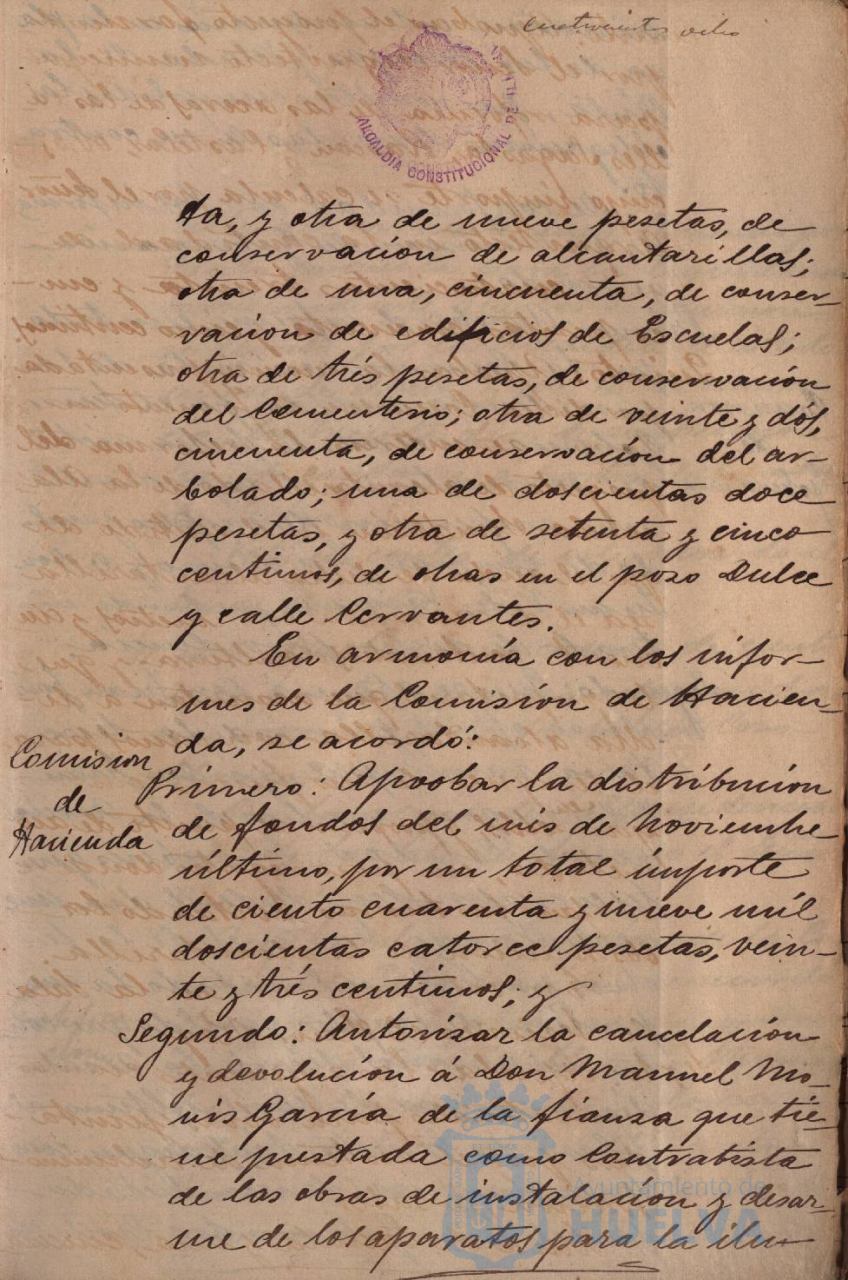 cuatrocientos ocho
ALCALDIA CONSTITUCIONAL DE HUELVA
ta, y otra de nueve pesetas, de
conservación de alcantarillas;
otra de una, cincuenta, de conser-
vacion de edificios de Escuelas;
otra de trés pesetas, de conservación
del Cementerio; otra de veinte y dós,
cincuenta, de conservación del ar-
bolado; una de doscientas doce
pesetas, y otra de setenta y cinco
centimos, de obras en el pozo Dulce
y calle Cervantes.
En armonía con los infor-
mes de la Comisión de Hacien-
da, se acordó:
Comision
de
Hacienda
Primero: Aprobar la distribución
de fondos del mes de Noviembre
último, por un total importe
de ciento cuarenta y nueve mil
doscientas catorce pesetas, vein-
te y trés centimos; y
Segundo: Autorizar la cancelación
y devolución á Don Manuel Mo-
nis García de la fianza que tie-
ne prestada como Contratista
de las obras de instalación y desar-
me de los aparatos para la ilu-
Ayuntamiento de
HUELVA